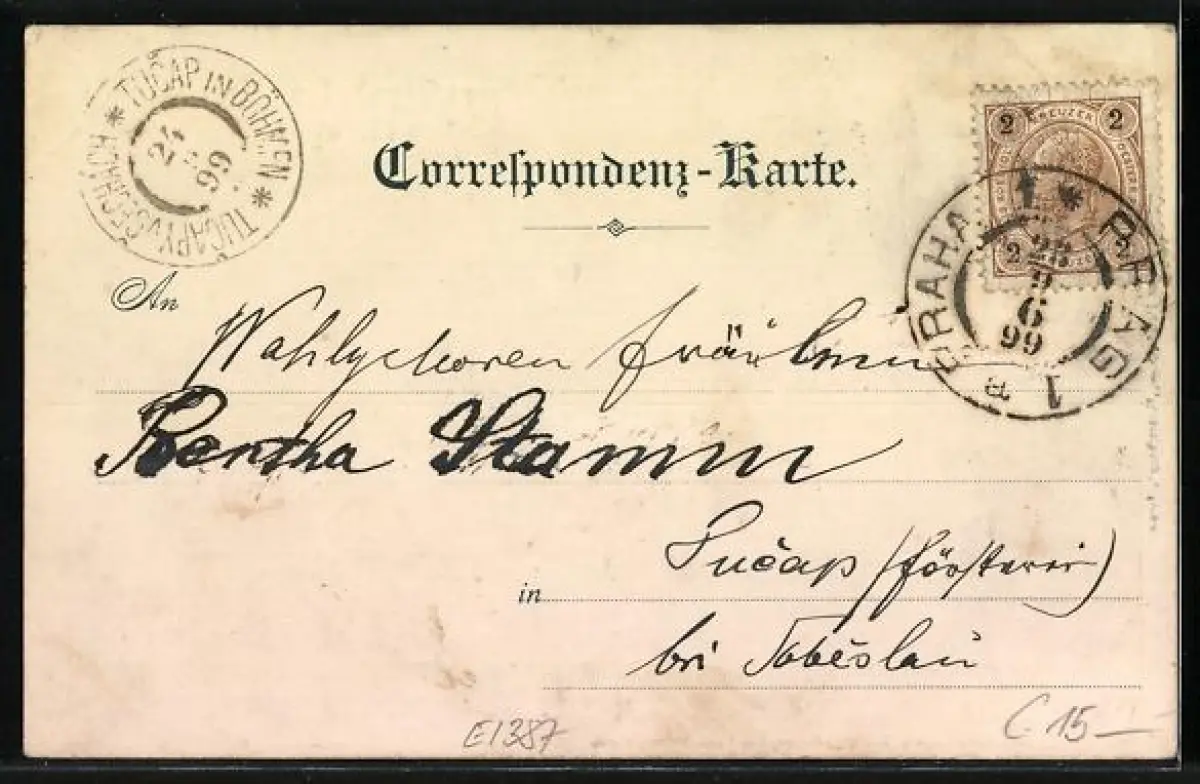 TUČAP IN BÖHMEN * TUČAPY V ČECHÁCH *
24
99
Correspondenz-Karte.
2 KREUZER 2
2
PRAHA 1 * PRAG 1 a
23
9
6
99
An
Wohlgeboren Fräulein
Bertha Stamm
Tučap (Försterei)
in
bei Sobĕslau
E1387
C 15—